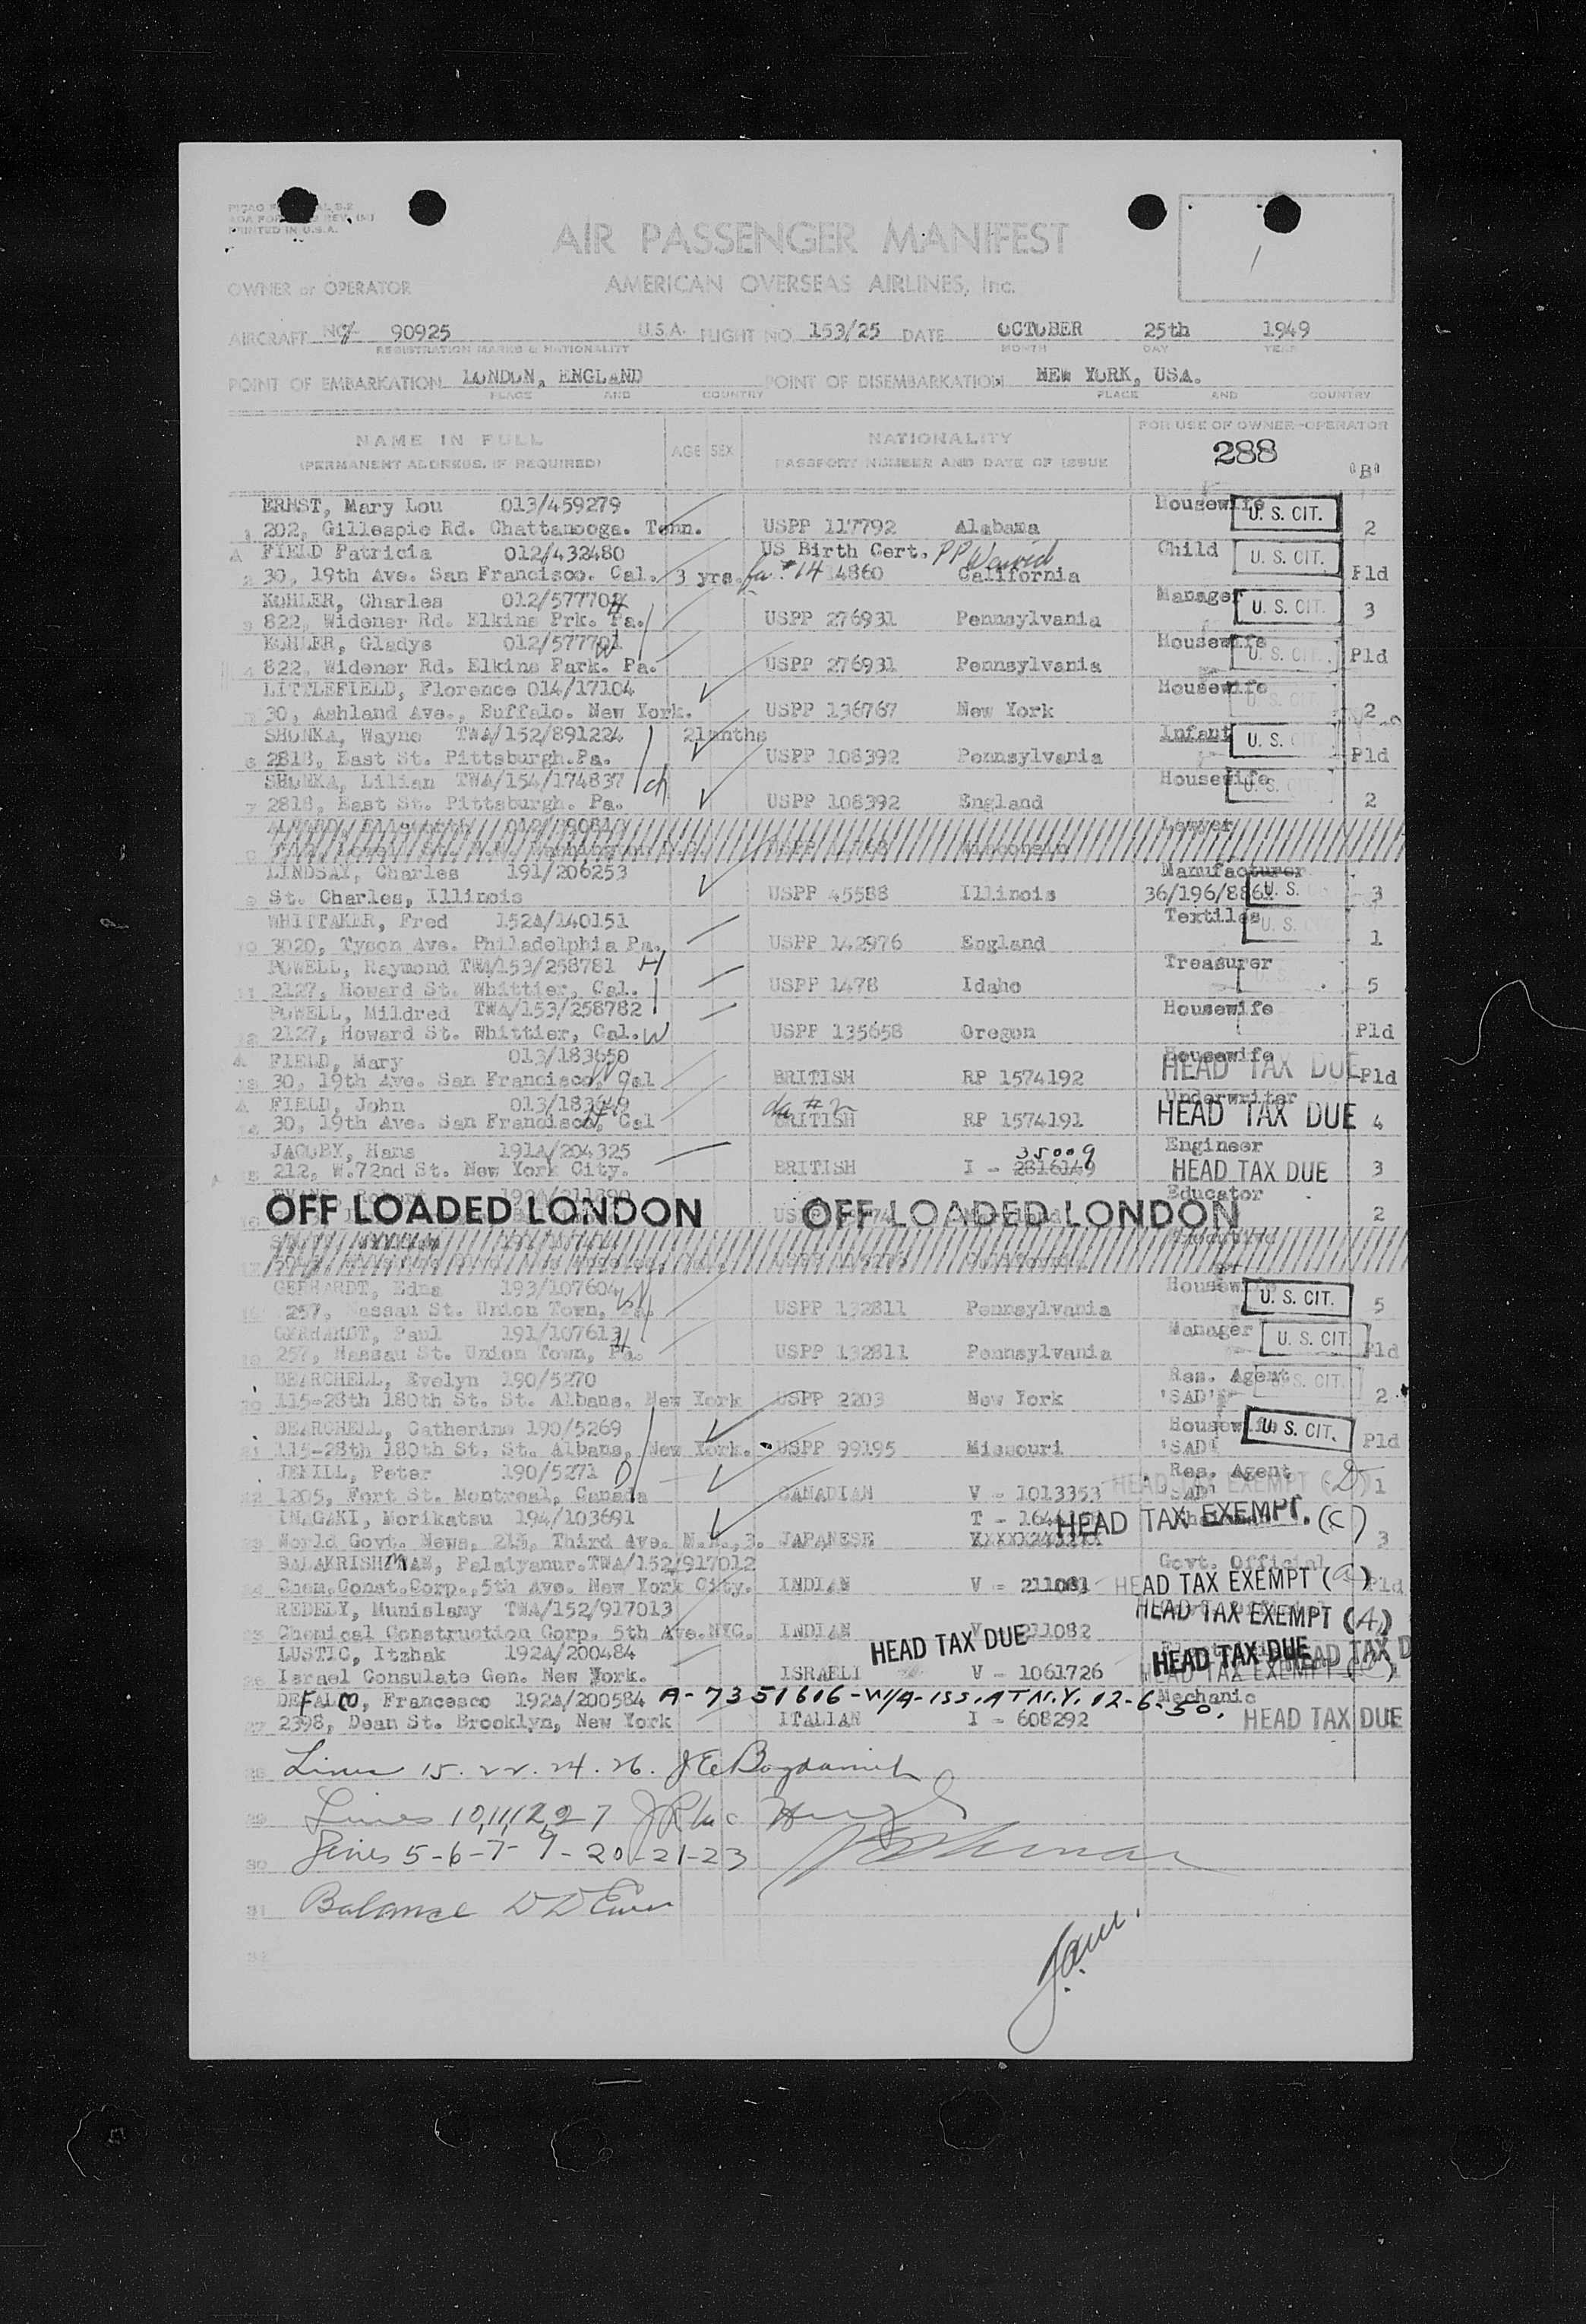 PRINTED IN U.S.A.
AIR PASSENGER MANIFEST
OWNER or OPERATOR AMERICAN OVERSEAS AIRLINES, Inc.
AIRCRAFT 90925 U.S.A. FLIGHT NO. 153/25 DATE OCTOBER 25th 1949
REGISTRATION MARKS & NATIONALITY MONTH DAY YEAR
POINT OF EMBARKATION LONDON, ENGLAND POINT OF DISEMBARKATION NEW YORK, USA.
PLACE AND COUNTRY PLACE AND COUNTRY
NAME IN FULL AGE SEX NATIONALITY FOR USE OF OWNER-OPERATOR
(PERMANENT ADDRESS, IF REQUIRED) PASSPORT NUMBER AND DATE OF ISSUE 288 "B"
ERNST, Mary Lou 013/459279 Housewife U. S. CIT.
1 202, Gillespie Rd. Chattanooga. Tenn. USPP 117792 Alabama 2
A FIELD Patricia 012/432480 US Birth Cert. PP Waived Child U. S. CIT.
2 30, 19th Ave. San Francisco. Cal. 3 yrs. 14860 California Pld
KOHLER, Charles Manager U. S. CIT.
3 822, Widener Rd. Elkins Prk. Pa. USPP 276931 Pennsylvania 3
KOHLER, Gladys 012/577701 Housewife U. S. CIT.
4 822, Widener Rd. Elkins Park. Pa. USPP 276931 Pennsylvania Pld
LITTLEFIELD, Florence 014/17104 Housewife
5 30, Ashland Ave., Buffalo. New York. USPP 136767 New York 2
SHONKA, Wayne TWA/152/891224 21mnths Infant U. S.
6 2818, East St. Pittsburgh.Pa. USPP 108392 Pennsylvania Pld
SHONKA, Lilian TWA/154/174837 ch Housewife U.S.
7 2818, East St. Pittsburgh. Pa. USPP 108392 England 2
Lawyer
Wisconsin
LINDSAY, Charles 191/206253 Manufacturer
9 St. Charles, Illinois USPP 45588 Illinois U. S. 3
WHITTAKER, Fred 152A/140151 Textiles U. S.
10 3020, Tyson Ave. Philadelphia Pa. USPP 142976 England 1
POWELL, Raymond TWA/153/258781 H Treasurer
11 2127, Howard St. Whittier, Cal. USPP 1478 Idaho 5
POWELL, Mildred TWA/153/258782 Housewife
12 2127, Howard St. Whittier, Cal. W USPP 135658 Oregon Pld
A FIELD, Mary 013/183650 Housewife
13 30, 19th Ave. San Francisco, Cal BRITISH RP 1574192 HEAD TAX DUE Pld
A FIELD, John da #2 Underwriter
14 30, 19th Ave. San Francisco, Cal BRITISH RP 1574191 HEAD TAX DUE 4
JACOBY, Hans 191A/204325 35009 Engineer
15 212, W.72nd St. New York City. BRITISH I - 2816149 HEAD TAX DUE 3
Educator
OFF LOADED LONDON OFF LOADED LONDON 2
GERHARDT, Edna 193/107604 W Housewife U. S. CIT.
257, Nassau St. Union Town, Pa. USPP 132811 Pennsylvania 5
GERHARDT, Paul 191/107613 H Manager U. S. CIT
19 257, Nassau St. Union Town, Pa. USPP 132811 Pennsylvania Pld
BEARCHELL, Evelyn 190/5270 Res. Agent U. S. CIT.
115-28th 180th St. St. Albans, New York USPP 2203 New York 'SAD' 2
BEARCHELL, Catherine 190/5269 Housewife U. S. CIT.
21 115-28th 180th St. St. Albans, New York. USPP 99195 Missouri 'SAD' Pld
JEMILL, Peter 190/5271 D Res. Agent
22 1205, Fort St. Montreal, Canada CANADIAN V - 1013353 HEAD TAX EXEMPT (D) 1
INAGAKI, Morikatsu 194/103691 HEAD TAX EXEMPT. (C)
23 World Govt. News, 215, Third Ave. N.Y.,3. JAPANESE 3
BALAKRISHMAN, Palaiyanur.TWA/152/917012 Govt. Official
24 Chem.Const.Corp.,5th Ave. New York City. INDIAN V - 211081 HEAD TAX EXEMPT (a) Pld
REDELY, Munislamy TWA/152/917013 HEAD TAX EXEMPT (A)
25 Chemical Construction Corp. 5th Ave.NYC. INDIAN V 211082
LUSTIC, Itzhak 192A/200484 HEAD TAX DUE HEAD TAX DUE HEAD TAX D
26 Israel Consulate Gen. New York. ISRAELI V - 1061726 HEAD TAX EXEMPT
DEFALCO, Francesco 192A/200584 A-7351616-W/A-ISS.AT N.Y. 12-6-50. Mechanic
27 2398, Dean St. Brooklyn, New York ITALIAN I - 608292 HEAD TAX DUE
28 Lines 15. 22. 24. 26.
29 Lines 10,11,12,27
30 Lines 5-6-7-9-20-21-23
31 Balance
32